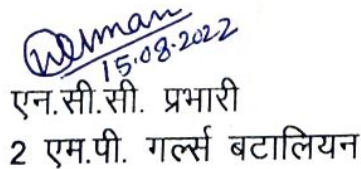 15.08.2022
एन.सी.सी. प्रभारी
2 एम.पी. गर्ल्स बटालियन